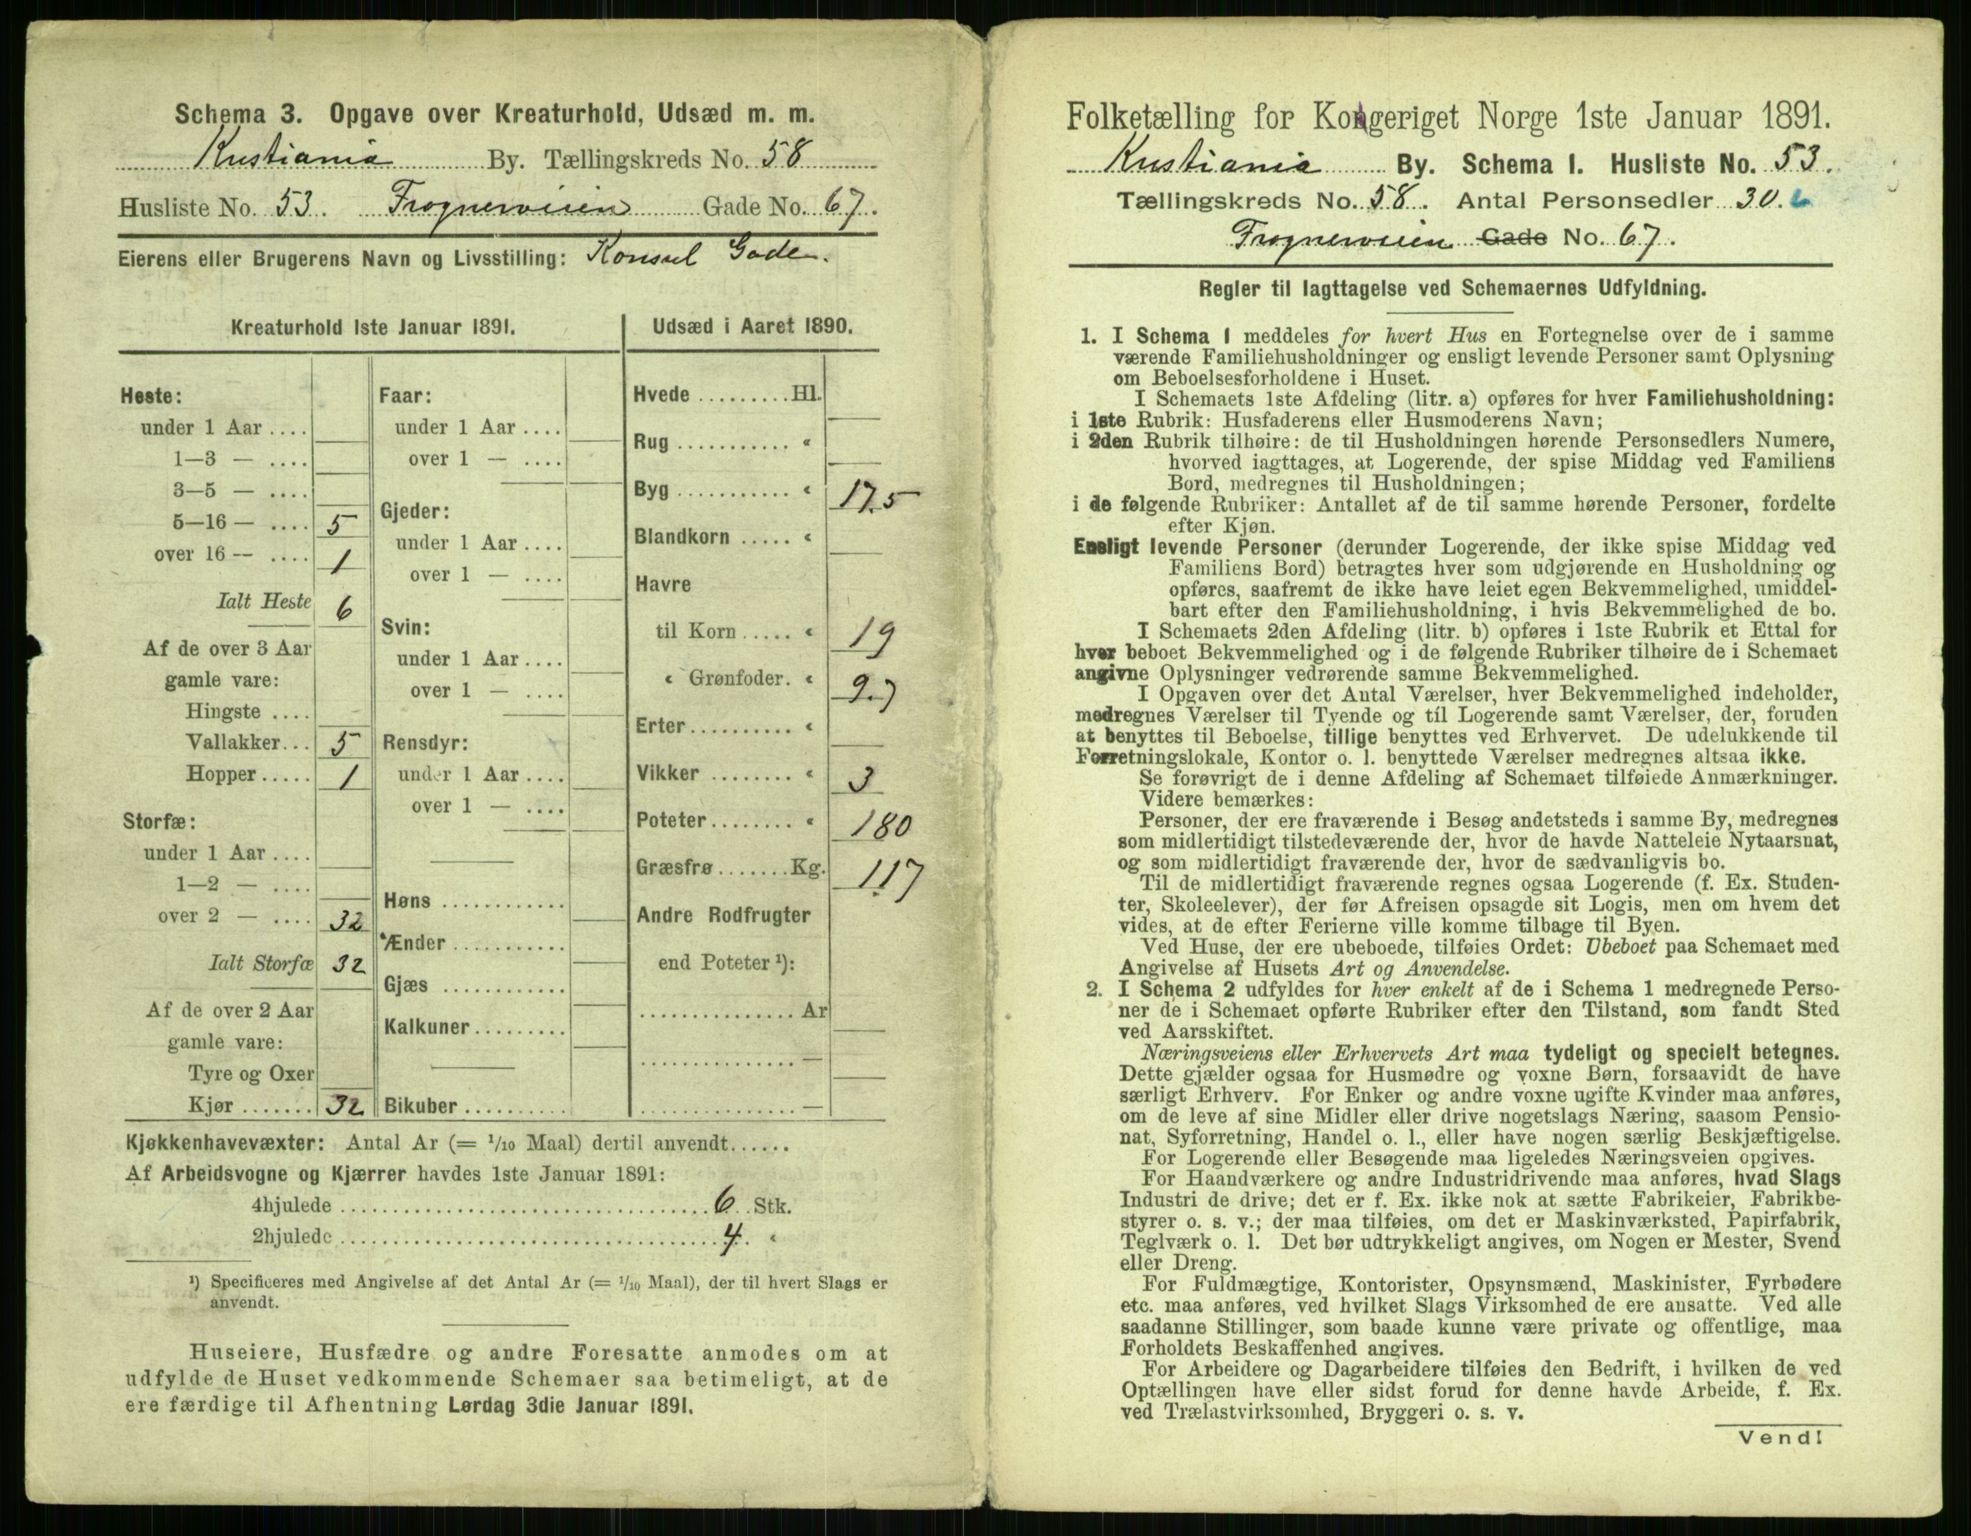 Schema 3. Opgave over Kreaturhold, Udsæd m. m.
Kristiania By. Tællingskreds No. 58
Husliste No. 53. Frognerveien Gade No. 67.
Eierens eller Brugerens Navn og Livsstilling: Konsul Gade.
Kreaturhold 1ste Januar 1891.
Heste:
under 1 Aar ....
1—3 — ....
3—5 — ....
5—16 — .... 5
over 16 — .... 1
Ialt Heste 6
Af de over 3 Aar
gamle vare:
Hingste ....
Vallakker... 5
Hopper..... 1
Storfæ:
under 1 Aar ....
1—2 — ....
over 2 — .... 32
Ialt Storfæ 32
Af de over 2 Aar
gamle vare:
Tyre og Oxer
Kjør ....... 32
Faar:
under 1 Aar ....
over 1 — ....
Gjeder:
under 1 Aar ....
over 1 — ....
Svin:
under 1 Aar ....
over 1 — ....
Rensdyr:
under 1 Aar ....
over 1 — ....
Høns ............
Ænder ...........
Gjæs ............
Kalkuner.........
Bikuber ..........
Udsæd i Aaret 1890.
Hvede ......... Hl.
Rug ........... «
Byg ........... « 17.5
Blandkorn ..... «
Havre
til Korn ..... « 19
« Grønfoder. « 9.7
Erter .......... «
Vikker ........ « 3
Poteter........ « 180
Græsfrø ....... Kg. 117
Andre Rodfrugter
end Poteter ¹):
............... Ar
............... —
............... —
Kjøkkenhavevæxter: Antal Ar (= 1/10 Maal) dertil anvendt......
Af Arbeidsvogne og Kjærrer havdes 1ste Januar 1891:
4hjulede .................................... 6 Stk.
2hjulede .................................... 4 «
¹) Specificeres med Angivelse af det Antal Ar (= 1/10 Maal), der til hvert Slags er
anvendt.
Huseiere, Husfædre og andre Foresatte anmodes om at
udfylde de Huset vedkommende Schemaer saa betimeligt, at de
ere færdige til Afhentning Lørdag 3die Januar 1891.
Folketælling for Kongeriget Norge 1ste Januar 1891.
Kristiania By. Schema I. Husliste No. 53.
Tællingskreds No. 58. Antal Personsedler 30.
Frognerveien Gade No. 67.
Regler til Iagttagelse ved Schemaernes Udfyldning.
1. I Schema 1 meddeles for hvert Hus en Fortegnelse over de i samme
værende Familiehusholdninger og ensligt levende Personer samt Oplysning
om Beboelsesforholdene i Huset.
I Schemaets 1ste Afdeling (litr. a) opføres for hver Familiehusholdning:
i 1ste Rubrik: Husfaderens eller Husmoderens Navn;
i 2den Rubrik tilhøire: de til Husholdningen hørende Personsedlers Numere,
hvorved iagttages, at Logerende, der spise Middag ved Familiens
Bord, medregnes til Husholdningen;
i de følgende Rubriker: Antallet af de til samme hørende Personer, fordelte
efter Kjøn.
Ensligt levende Personer (derunder Logerende, der ikke spise Middag ved
Familiens Bord) betragtes hver som udgjørende en Husholdning og
opføres, saafremt de ikke have leiet egen Bekvemmelighed, umiddel-
bart efter den Familiehusholdning, i hvis Bekvemmelighed de bo.
I Schemaets 2den Afdeling (litr. b) opføres i 1ste Rubrik et Ettal for
hver beboet Bekvemmelighed og i de følgende Rubriker tilhøire de i Schemaet
angivne Oplysninger vedrørende samme Bekvemmelighed.
I Opgaven over det Antal Værelser, hver Bekvemmelighed indeholder,
medregnes Værelser til Tyende og til Logerende samt Værelser, der, foruden
at benyttes til Beboelse, tillige benyttes ved Erhvervet. De udelukkende til
Forretningslokale, Kontor o. l. benyttede Værelser medregnes altsaa ikke.
Se forøvrigt de i denne Afdeling af Schemaet tilføiede Anmærkninger.
Videre bemærkes:
Personer, der ere fraværende i Besøg andetsteds i samme By, medregnes
som midlertidigt tilstedeværende der, hvor de havde Natteleie Nytaarsnat,
og som midlertidigt fraværende der, hvor de sædvanligvis bo.
Til de midlertidigt fraværende regnes ogsaa Logerende (f. Ex. Studen-
ter, Skoleelever), der før Afreisen opsagde sit Logis, men om hvem det
vides, at de efter Ferierne ville komme tilbage til Byen.
Ved Huse, der ere ubeboede, tilføies Ordet: Ubeboet paa Schemaet med
Angivelse af Husets Art og Anvendelse.
2. I Schema 2 udfyldes for hver enkelt af de i Schema 1 medregnede Perso-
ner de i Schemaet opførte Rubriker efter den Tilstand, som fandt Sted
ved Aarsskiftet.
Næringsveiens eller Erhvervets Art maa tydeligt og specielt betegnes.
Dette gjælder ogsaa for Husmødre og voxne Børn, forsaavidt de have
særligt Erhverv. For Enker og andre voxne ugifte Kvinder maa anføres,
om de leve af sine Midler eller drive nogetslags Næring, saasom Pensio-
nat, Syforretning, Handel o. l., eller have nogen særlig Beskjæftigelse.
For Logerende eller Besøgende maa ligeledes Næringsveien opgives.
For Haandværkere og andre Industridrivende maa anføres, hvad Slags
Industri de drive; det er f. Ex. ikke nok at sætte Fabrikeier, Fabrikbe-
styrer o. s. v.; der maa tilføies, om det er Maskinværksted, Papirfabrik,
Teglværk o. l. Det bør udtrykkeligt angives, om Nogen er Mester, Svend
eller Dreng.
For Fuldmægtige, Kontorister, Opsynsmænd, Maskinister, Fyrbødere
etc. maa anføres, ved hvilket Slags Virksomhed de ere ansatte. Ved alle
saadanne Stillinger, som baade kunne være private og offentlige, maa
Forholdets Beskaffenhed angives.
For Arbeidere og Dagarbeidere tilføies den Bedrift, i hvilken de ved
Optællingen have eller sidst forud for denne havde Arbeide, f. Ex.
ved Trælastvirksomhed, Bryggeri o. s. v.
Vend!